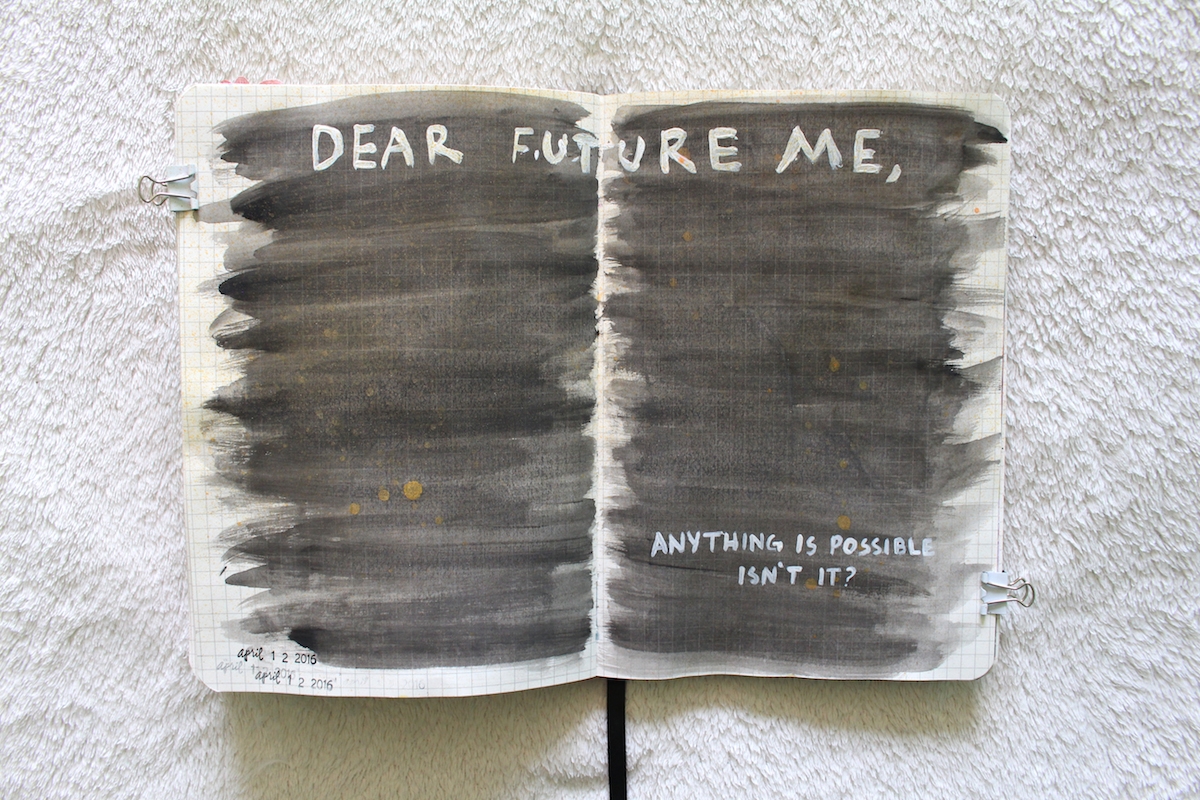 DEAR FUTURE ME,
ANYTHING IS POSSIBLE
ISN'T IT?
april 1 2 2016
april 1 2 2016